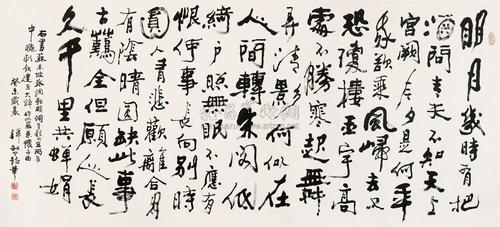 明月幾時有把
酒問青天不知天上
宮闕今夕是何年
我欲乘風歸去又
恐瓊樓玉宇高
處不勝寒起舞
弄清影何似在
人間轉朱閣低
綺戶照無眠不應有
恨何事長向別時
圓人有悲歡離合月
有陰晴圓缺此事
古難全但願人長
久千里共嬋娟
右書蘇東坡水調歌頭
癸未歲暮